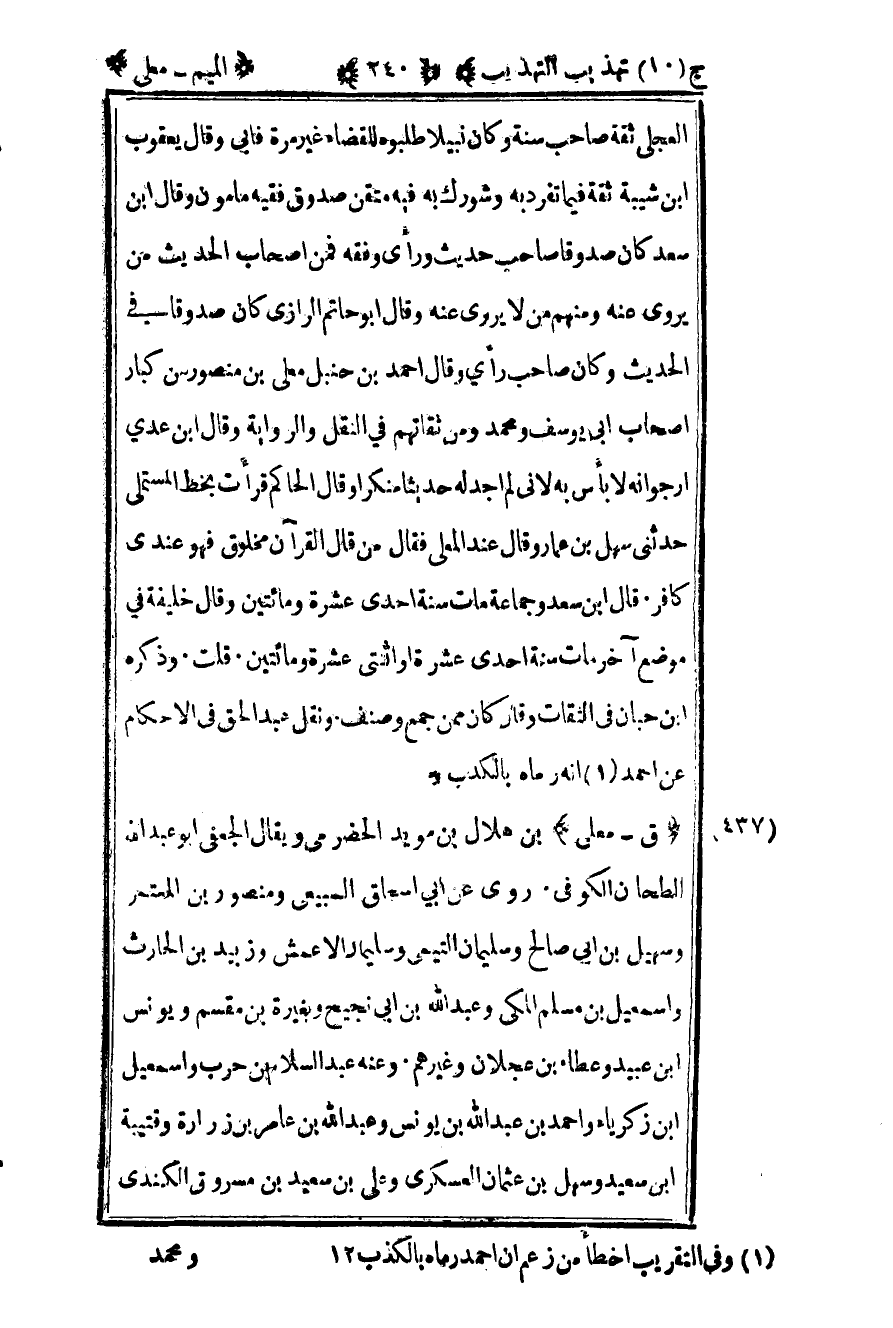 ج (١٠) تهذيب التهذيب ﴿ ٢٤٠ ﴾ ﴿ الميم - معلى ﴾
العجلى ثقة صاحب سنة وكان نبيلا طلبوه للقضاء غير مرة فابى وقال يعقوب
ابن شيبة ثقة فيما تفرد به وشورك به فيه متقن صدوق فقيه مامون وقال ابن
سعد كان صدوقا صاحب حديث ورأى وفقه فمن اصحاب الحديث من
يروى عنه ومنهم من لا يروى عنه وقال ابو حاتم الرازى كان صدوقا فى
الحديث وكان صاحب رأي وقال احمد بن حنبل معلى بن منصور من كبار
اصحاب ابى يوسف ومحمد ومن ثقاتهم في النقل والرواية وقال ابن عدي
ارجو انه لا بأس به لانى لم اجد له حديثا منكرا وقال الحاكم قرأت بخط المستملى
حدثنى سهل بن عمار وقال عند المعلى فقال من قال القرآن مخلوق فهو عندى
كافر · قال ابن سعد وجماعة مات سنة احدى عشرة ومائتين وقال خليفة في
موضع آخر مات سنة احدى عشرة او اثنتى عشرة ومائتين · قلت · وذكره
ابن حبان فى الثقات وقال كان ممن جمع وصنف · ونقل عبد الحق فى الاحكام
عن احمد (١) انه رماه بالكذب *
(٤٣٧) ﴿ ق - معلى ﴾ بن هلال بن سويد الحضرمى ويقال الجعفى ابو عبد الله
الطحان الكوفى · روى عن ابي اسحاق السبيعى ومنصور بن المعتمر
وسهيل بن ابي صالح وسليمان التيمى وسليمان الاعمش وزبيد بن الحارث
واسمعيل بن مسلم المكى وعبد الله بن ابى نجيح ومغيرة بن مقسم ويونس
ابن عبيد وعطاء بن عجلان وغيرهم · وعنه عبد السلام بن حرب واسمعيل
ابن زكرياء واحمد بن عبد الله بن يونس وعبد الله بن عامر بن زرارة وقتيبة
ابن سعيد وسهل بن عثمان العسكرى وعلى بن سعيد بن مسروق الكندى
(١) وفى التقريب اخطأ من زعم ان احمد رماه بالكذب ١٢
ومحمد